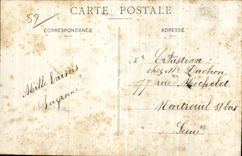 52
CARTE POSTALE
CORRESPONDANCE
ADRESSE
Mille baisers
Suzanne
chez Mr
77 rue Michelet
Montreuil s/ bois
Seine